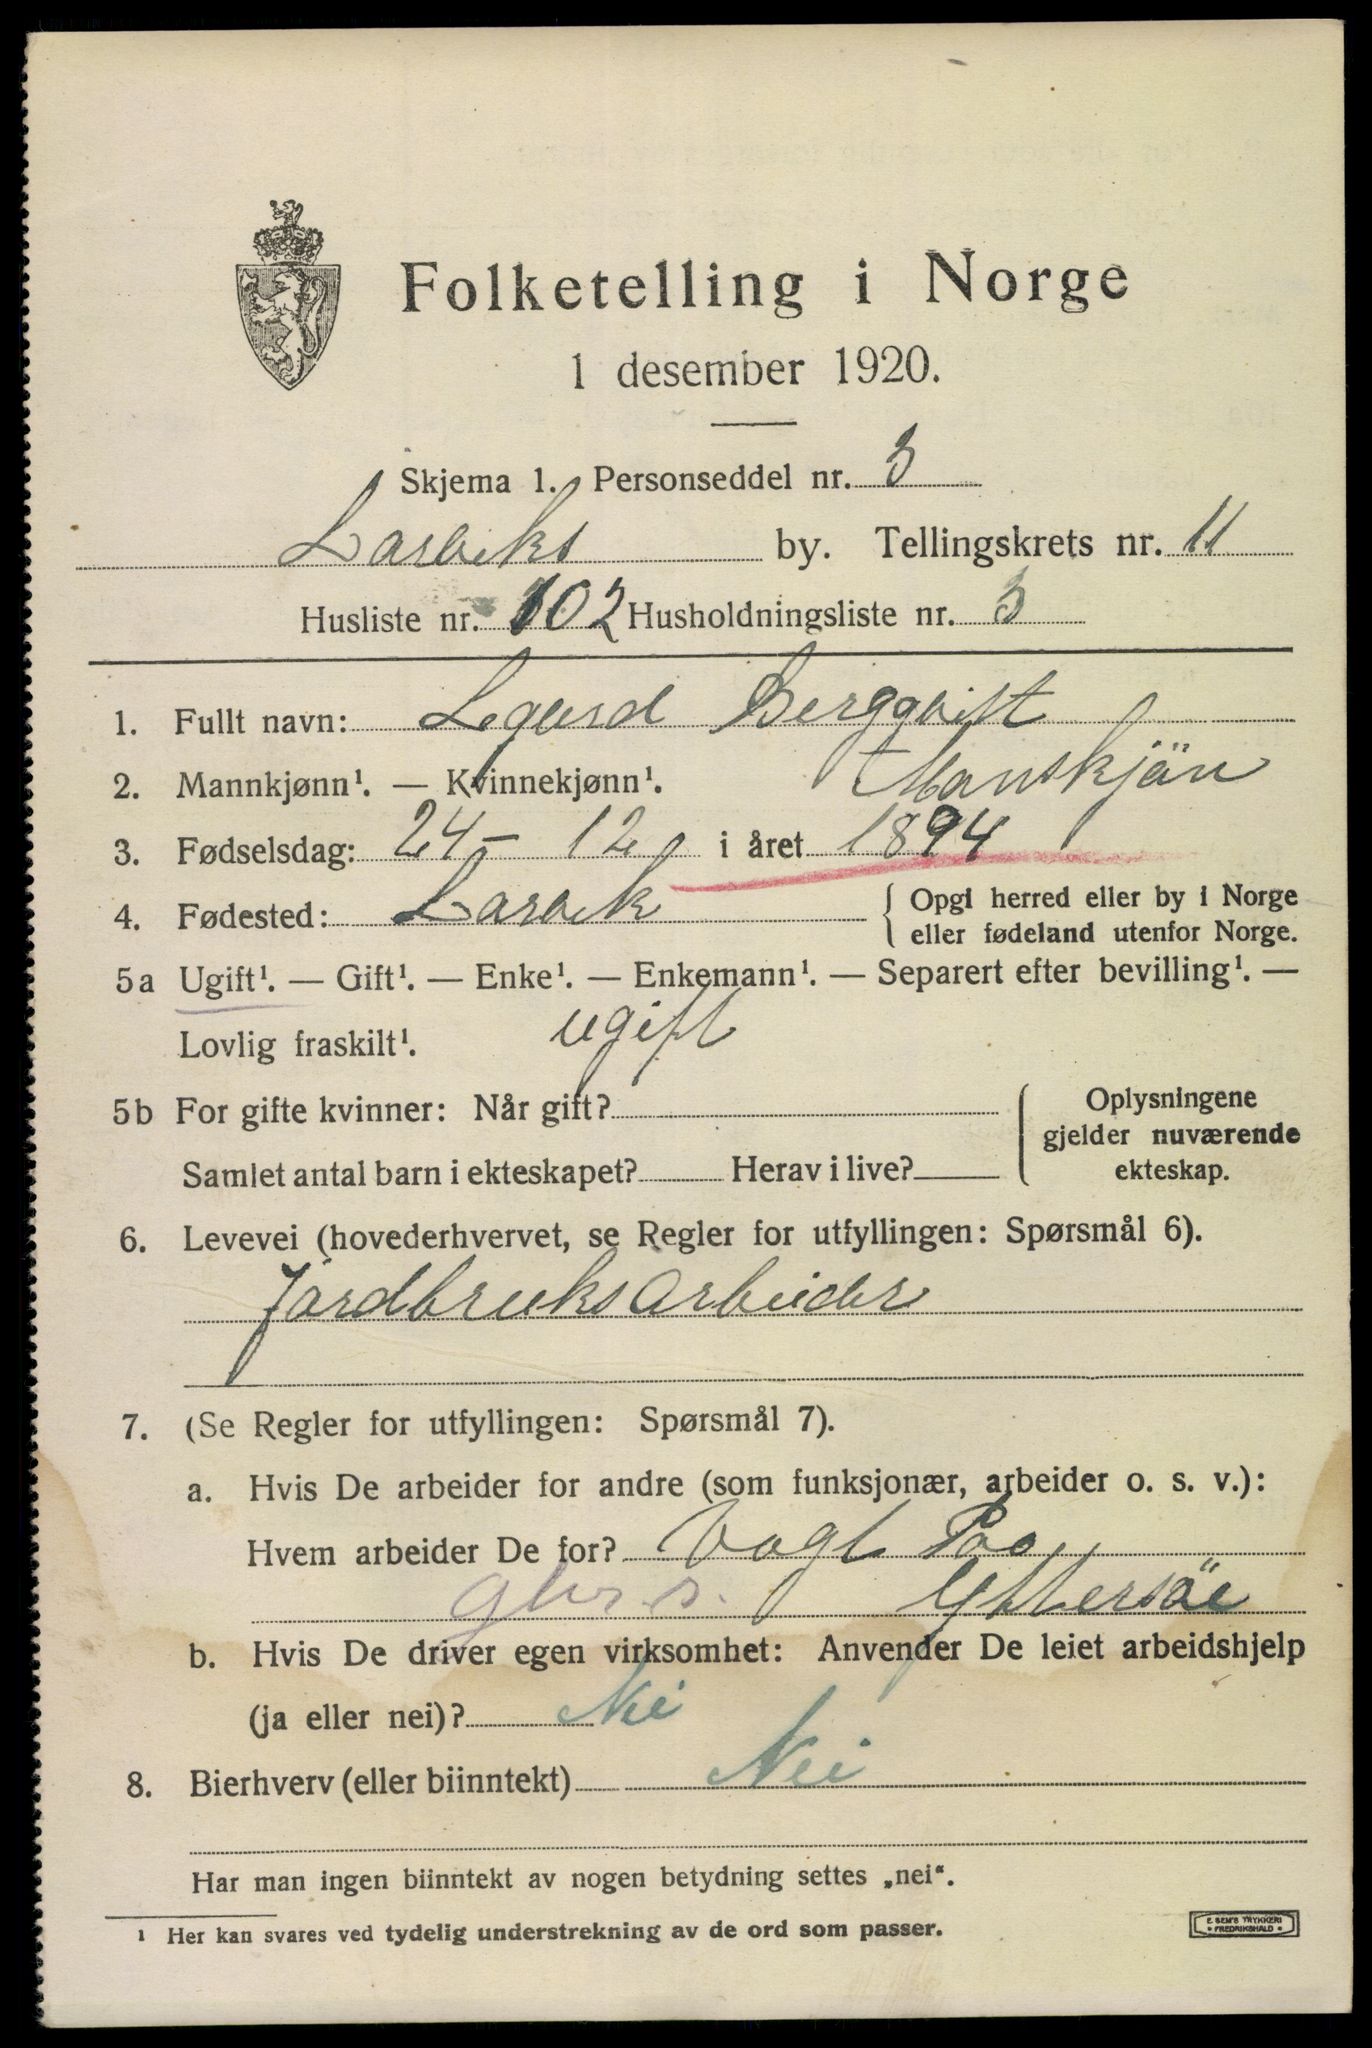 Folketelling i Norge
1 desember 1920.
Skjema 1. Personseddel nr. 3
Larviks by. Tellingskrets nr. 11
Husliste nr. 102 Husholdningsliste nr. 3
1. Fullt navn: Bergqvist
2. Mannkjønn¹. — Kvinnekjønn¹. Manskjän
3. Fødselsdag: 24 – 12 i året 1894
4. Fødested: Larvik { Opgi herred eller by i Norge
eller fødeland utenfor Norge.
5a Ugift¹. — Gift¹. — Enke¹. — Enkemann¹. — Separert efter bevilling¹. —
Lovlig fraskilt¹. ugift
5b For gifte kvinner: Når gift? { Oplysningene
gjelder nuværende
Samlet antal barn i ekteskapet? Herav i live? ekteskap.
6. Levevei (hovederhvervet, se Regler for utfyllingen: Spørsmål 6).
Jordbruksarbeider
7. (Se Regler for utfyllingen: Spørsmål 7).
a. Hvis De arbeider for andre (som funksjonær, arbeider o. s. v.):
Hvem arbeider De for? Vogt Paa
Yttersöe
b. Hvis De driver egen virksomhet: Anvender De leiet arbeidshjelp
(ja eller nei)? Nei
8. Bierhverv (eller biinntekt) Nei
Har man ingen biinntekt av nogen betydning settes „nei“.
¹ Her kan svares ved tydelig understrekning av de ord som passer.
E. SEM'S TRYKKERI
• FREDRIKSHALD •